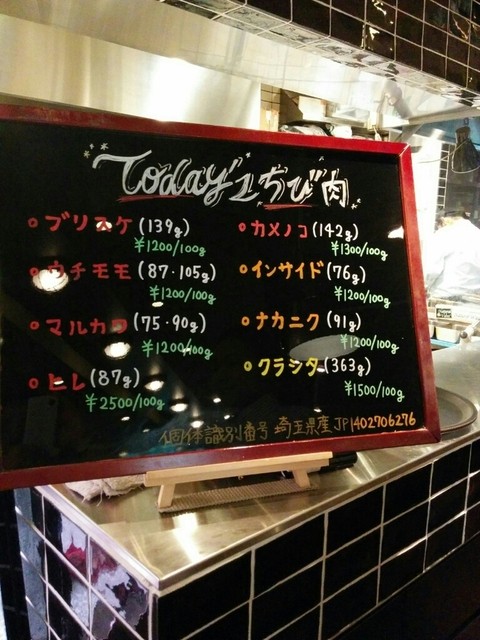 Today'sちび肉
ブリスケ(139g)
¥1200/100g
ウチモモ(87・105g)
¥1200/100g
マルカワ(75・90g)
¥1200/100g
ヒレ(87g)
¥2500/100g
カメノコ(142g)
¥1300/100g
インサイド(76g)
¥1200/100g
ナカニク(91g)
¥1200/100g
クラシタ(363g)
¥1500/100g
個体識別番号 埼玉県産 JP1402706276